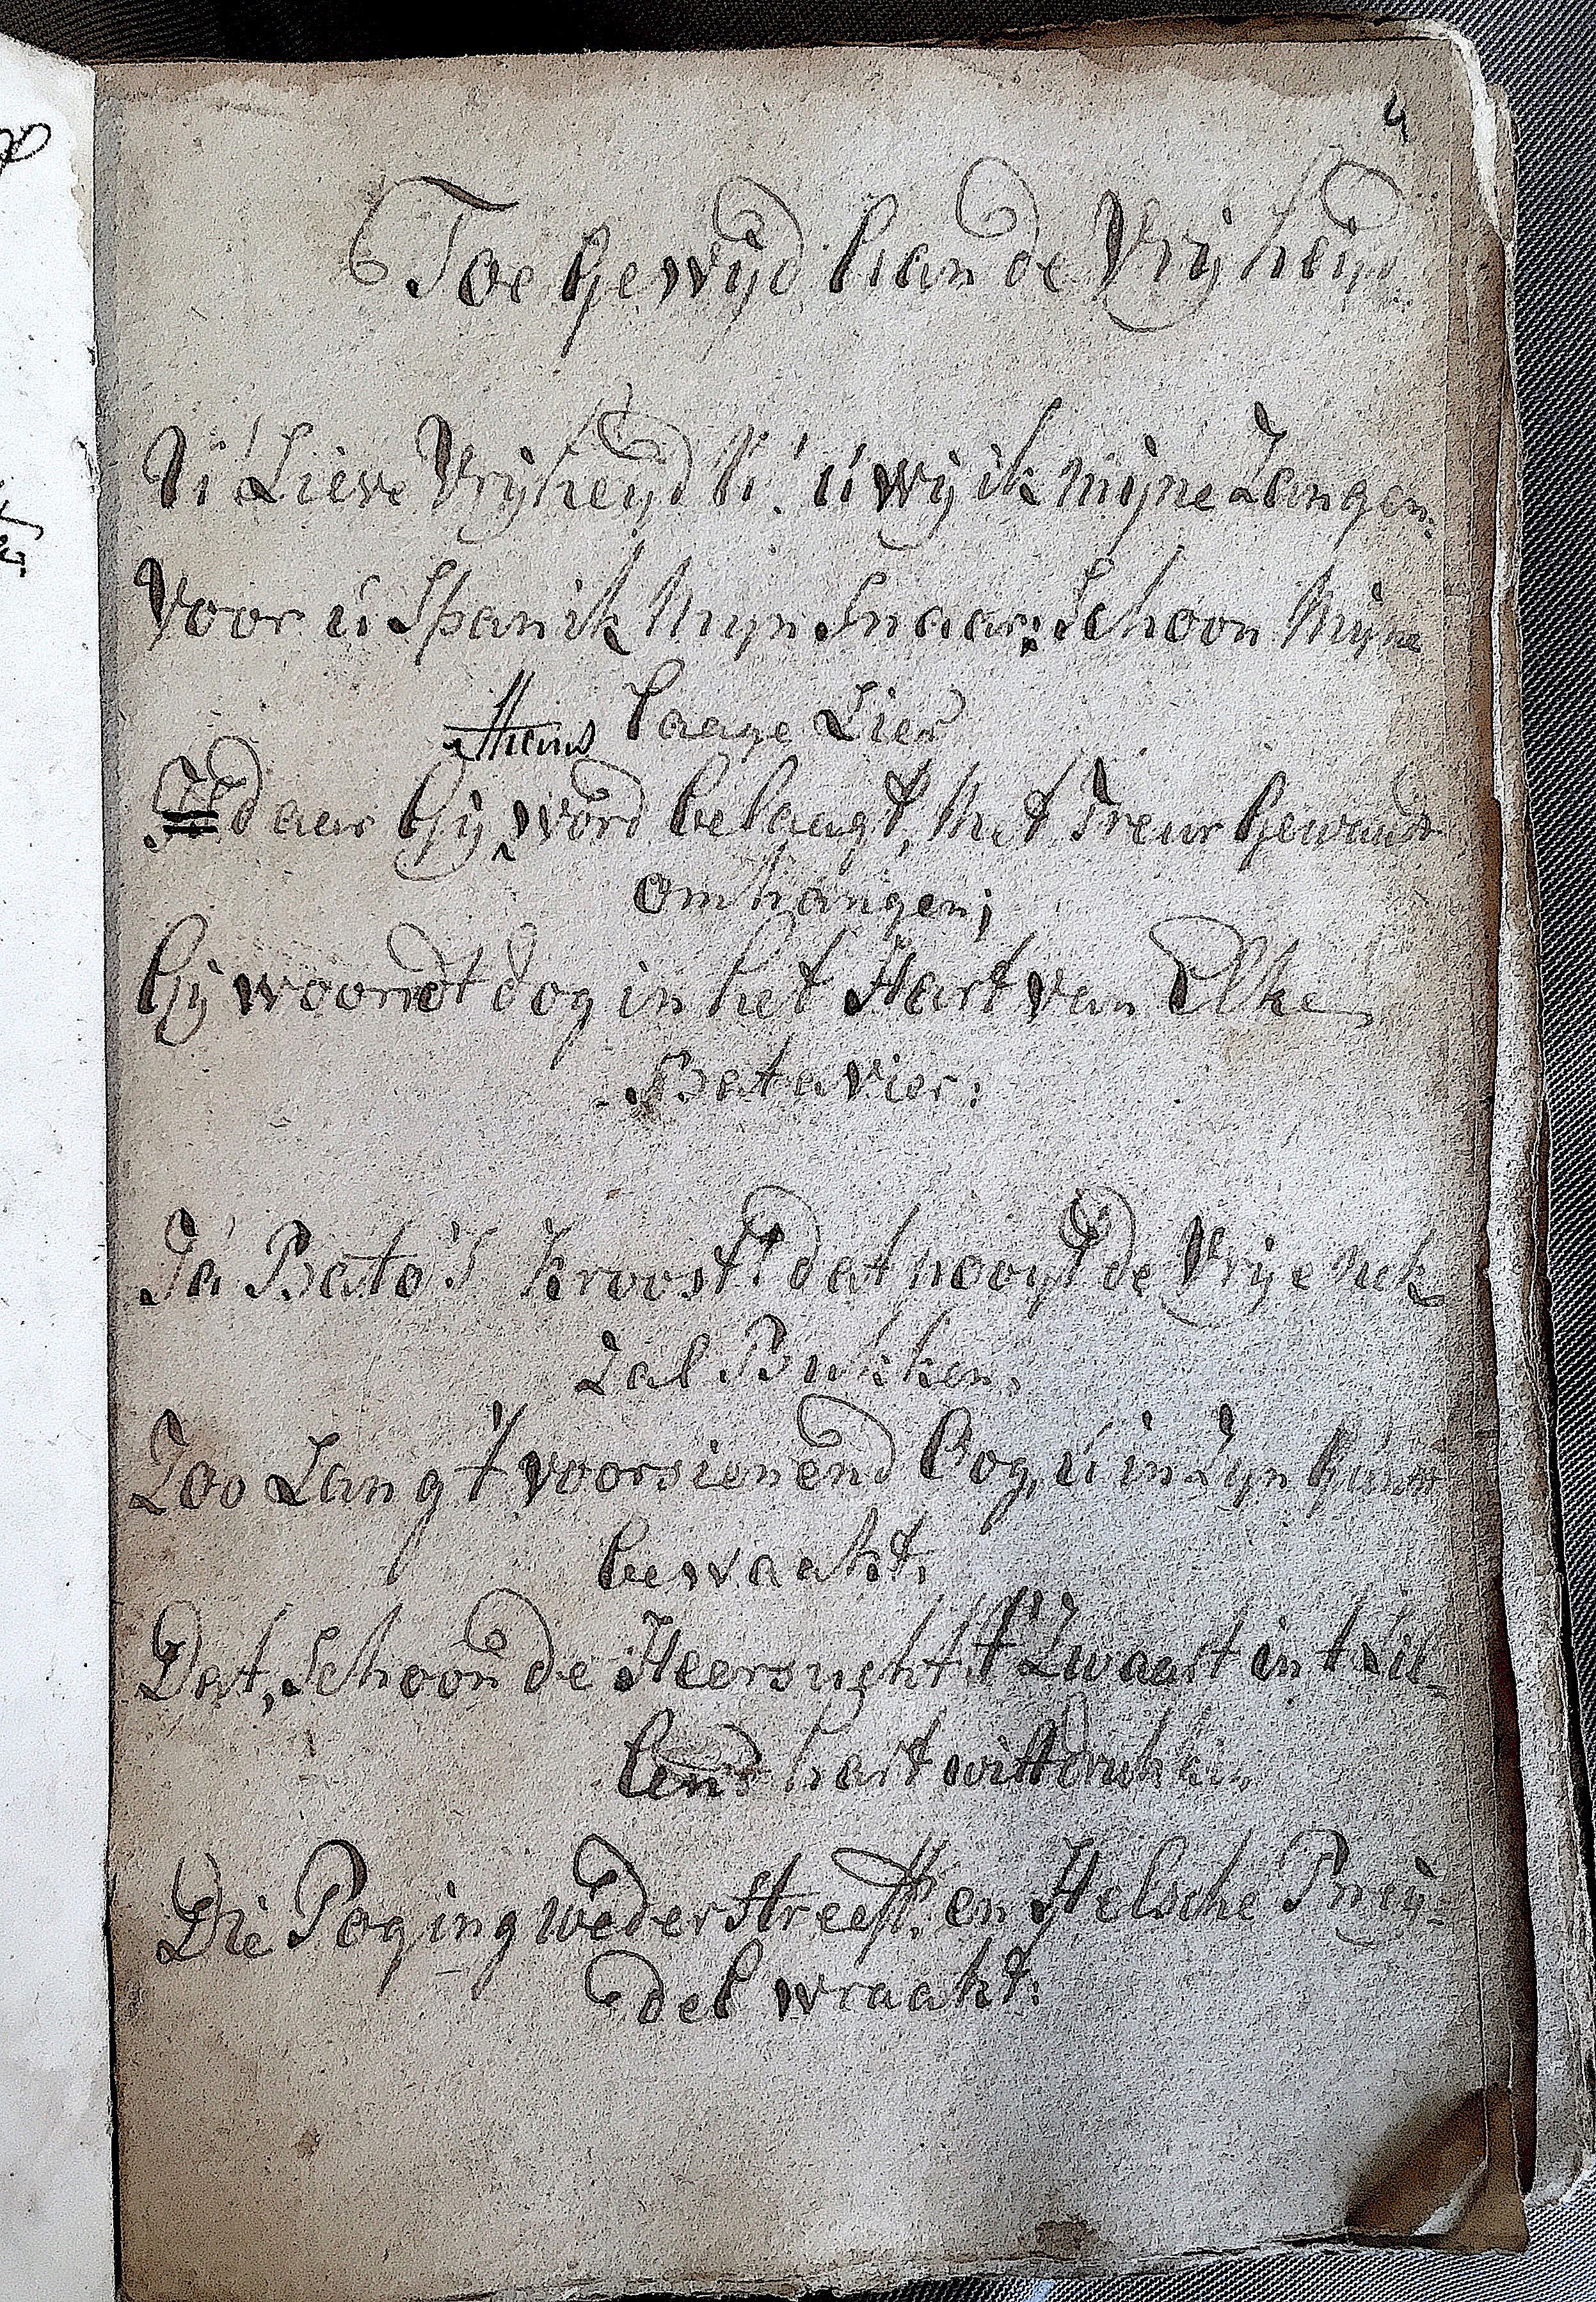 4
Toe Gewijd aan de Vrijheijd
U Lieve Vrijheijd U! u wij ik Mijne Zangen.
Voor u Span ik Mijn Snaar; Schoon Mijne
Laage Lier
daar Gij word belaagt, Met Treur Gewaad
omhangen;
Gij woondt dog in het Hart van Elke
Batavier:
Ja Bato's Kroost! dat nooyt de Vrije Nek
Zal Bukken,
Zoo Lang 't voorsienend Oog, u in Zyn Gunst
bewaakt;
Dat, Schoon de Heersught 't Zwaart in 't
lend hart wilt drukken,
Die Poging wederstreeft, en Helsche Pney-
del wraakt: